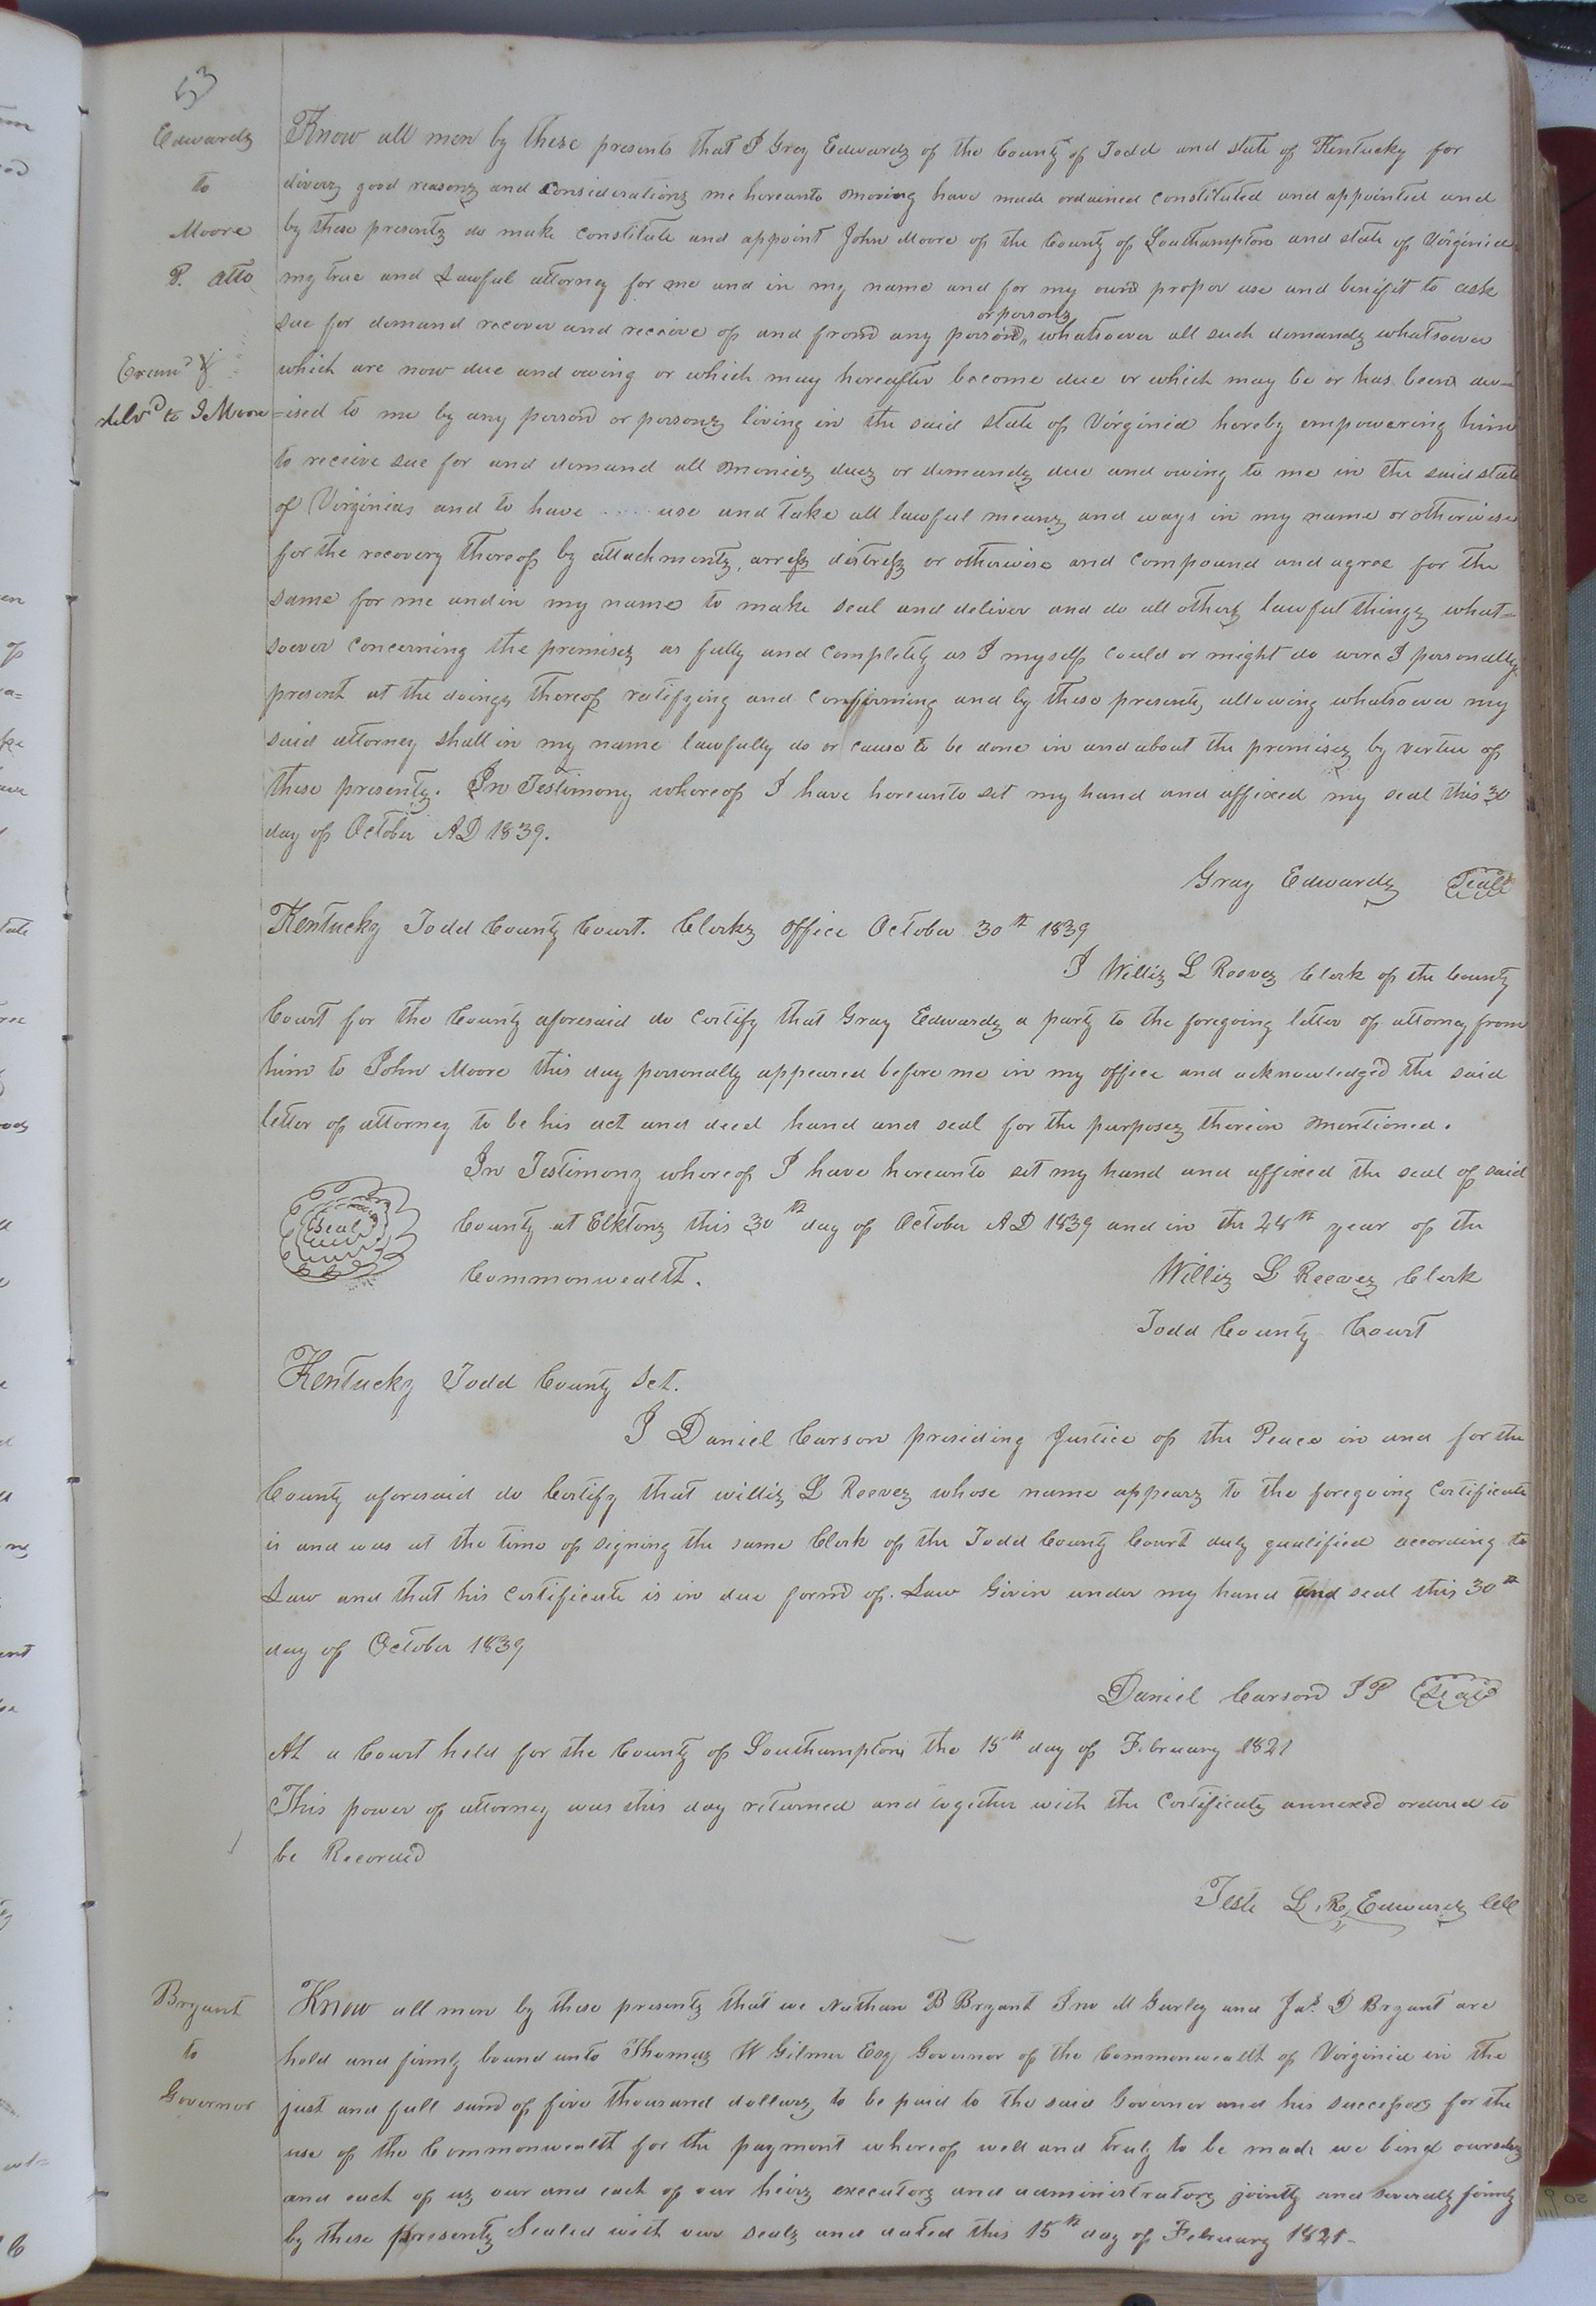 53
Edwards
to
Moore
P. atto
Know all men by these presents that I Gray Edwards of the County of Todd and state of Kentucky for
divers good reasons and considerations me hereunto moving have made ordained constituted and appointed and
by these presents do make constitute and appoint John Moore of the County of Southampton and state of Virginia
my true and Lawful attorney for me and in my name and for my own proper use and benifit to ask
or persons
sue for demand recover and receive of and from any person whatsoever all such demands whatsoever
Examd &
delvd to J Moore
which are now due and owing or which may hereafter become due or which may be or has been dev=
=ised to me by any person or persons living in the said state of Virginia hereby empowering him
to recieve sue for and demand all monies dues or demands due and owing to me in the said state
of Virginia and to have .... use and take all lawful means and ways in my name or otherwise
for the recovery thereof by attachments, arress distress or otherwise and compound and agree for the
same for me and in my name to make seal and deliver and do all others lawful things what=
soever concerning the premises as fully and completely as I myself could or might do were I personally
present at the doings thereof ratifying and confirming and by these presents allowing whatsoever my
said attorney shall in my name lawfully do or cause to be done in and about the premises by vertue of
these presents. In Testimony whereof I have hereunto set my hand and affixed my seal this 30
day of October AD 1839.
Gray Edwards Seal
Kentucky Todd County Court. Clerks office October 30th 1839
I Willis L Reeves Clerk of the County
Court for the County aforesaid do certify that Gray Edwards a party to the foregoing letter of attorney from
him to John Moore this day personally appeared before me in my office and acknowledged the said
letter of attorney to be his act and deed hand and seal for the purposes therein mentioned.
In Testimony whereof I have hereunto set my hand and affixed the seal of said
Seal
County at Elkton this 30th day of October AD 1839 and in the 48th year of the
Commonwealth.
Willis L Reeves Clerk
Todd County Court
Kentucky Todd County Sct.
I Daniel Carson presiding Justice of the Peace in and for the
County aforesaid do Certify that willis L Reeves whose name appears to the foregoing certificate
is and was at the time of signing the same Clerk of the Todd County Court duly qualified according to
Law and that his certificate is in due form of. Law Givin under my hand and seal this 30th
day of October 1839
Daniel Carson JP Seal
At a Court held for the County of Southampton the 15th day of February 1821
This power of attorney was this day returned and together with the Certificates annexed ordered to
be Recorded
Teste L. R. Edwards CC
Bryant
to
Governor
Know all men by these presents that we Nathan B Bryant Jno M Gurley and Jas. D Bryant are
held and firmly bound unto Thomas W Gilmer Esq Governor of the Commonwealth of Virginia in the
just and full sum of five thousand dollars to be paid to the said Governor and his successors for the
use of the Commonwealth for the payment whereof well and truly to be made we bind ourselves
and each of us our and each of our heirs executors and administrators jointly and severally firmly
by these presents Sealed with our seals and dated this 15th day of February 1821.